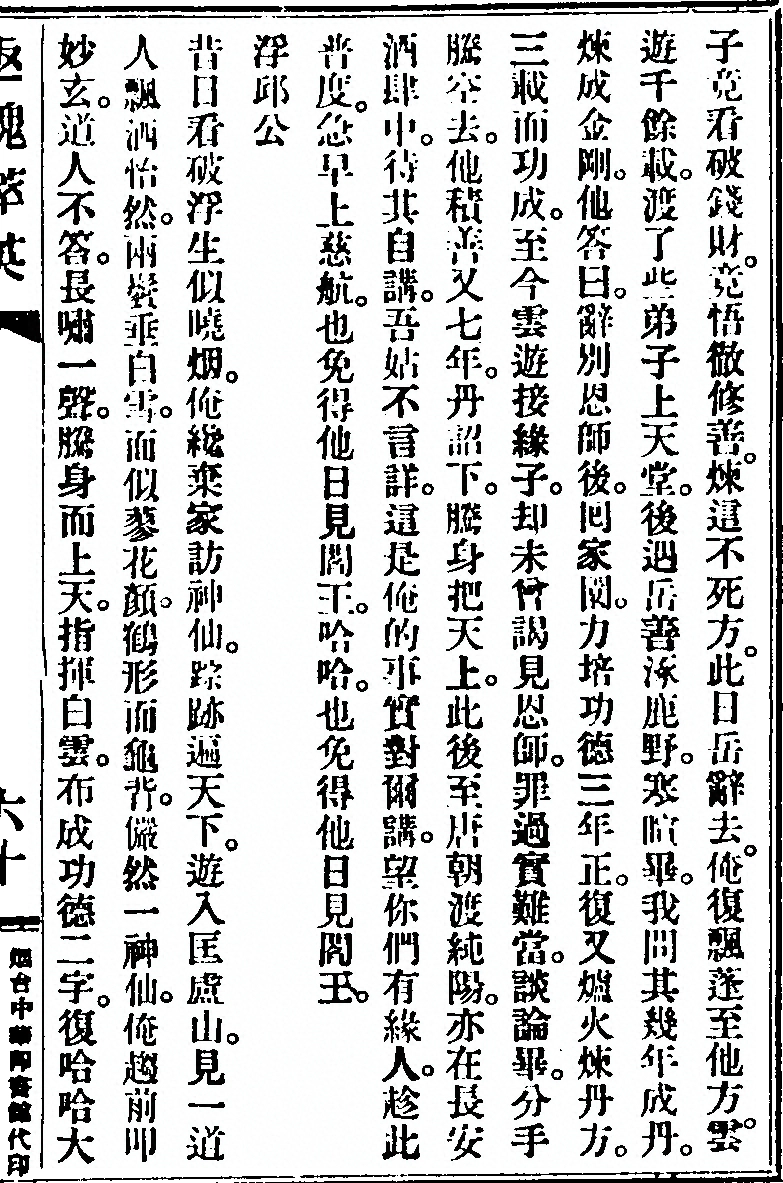 子竟看破錢財。竟悟徹修善。煉這不死方。此日岳辭去。俺復飄蓬至他方。雲
遊千餘載。渡了些弟子上天堂。後遇岳善涿鹿野。寒暄畢。我問其幾年成丹。
煉成金剛。他答曰。辭別恩師後。回家園。力培功德三年正。復又爐火煉丹方。
三載而功成。至今雲遊接緣子。却未曾謁見恩師。罪過實難當。談論畢。分手
騰空去。他積善又七年。丹詔下。騰身把天上。此後至唐朝渡純陽。亦在長安
酒肆中。待其自講。吾姑不言詳。這是俺的事實對爾講。望你們有緣人。趁此
普度。急早上慈航。也免得他日見閻王。哈哈。也免得他日見閻王。
浮邱公
昔日看破浮生似曉烟。俺纔棄家訪神仙。踪跡遍天下。遊入匡廬山。見一道
人飄洒怡然。兩鬢垂白雪。面似蓼花顏。鶴形而龜背。儼然一神仙。俺趨前叩
妙玄。道人不答。長嘯一聲。騰身而上天。指揮白雲。布成功德二字。復哈哈大
返魂萃英
六十
烟台中華印書館代印